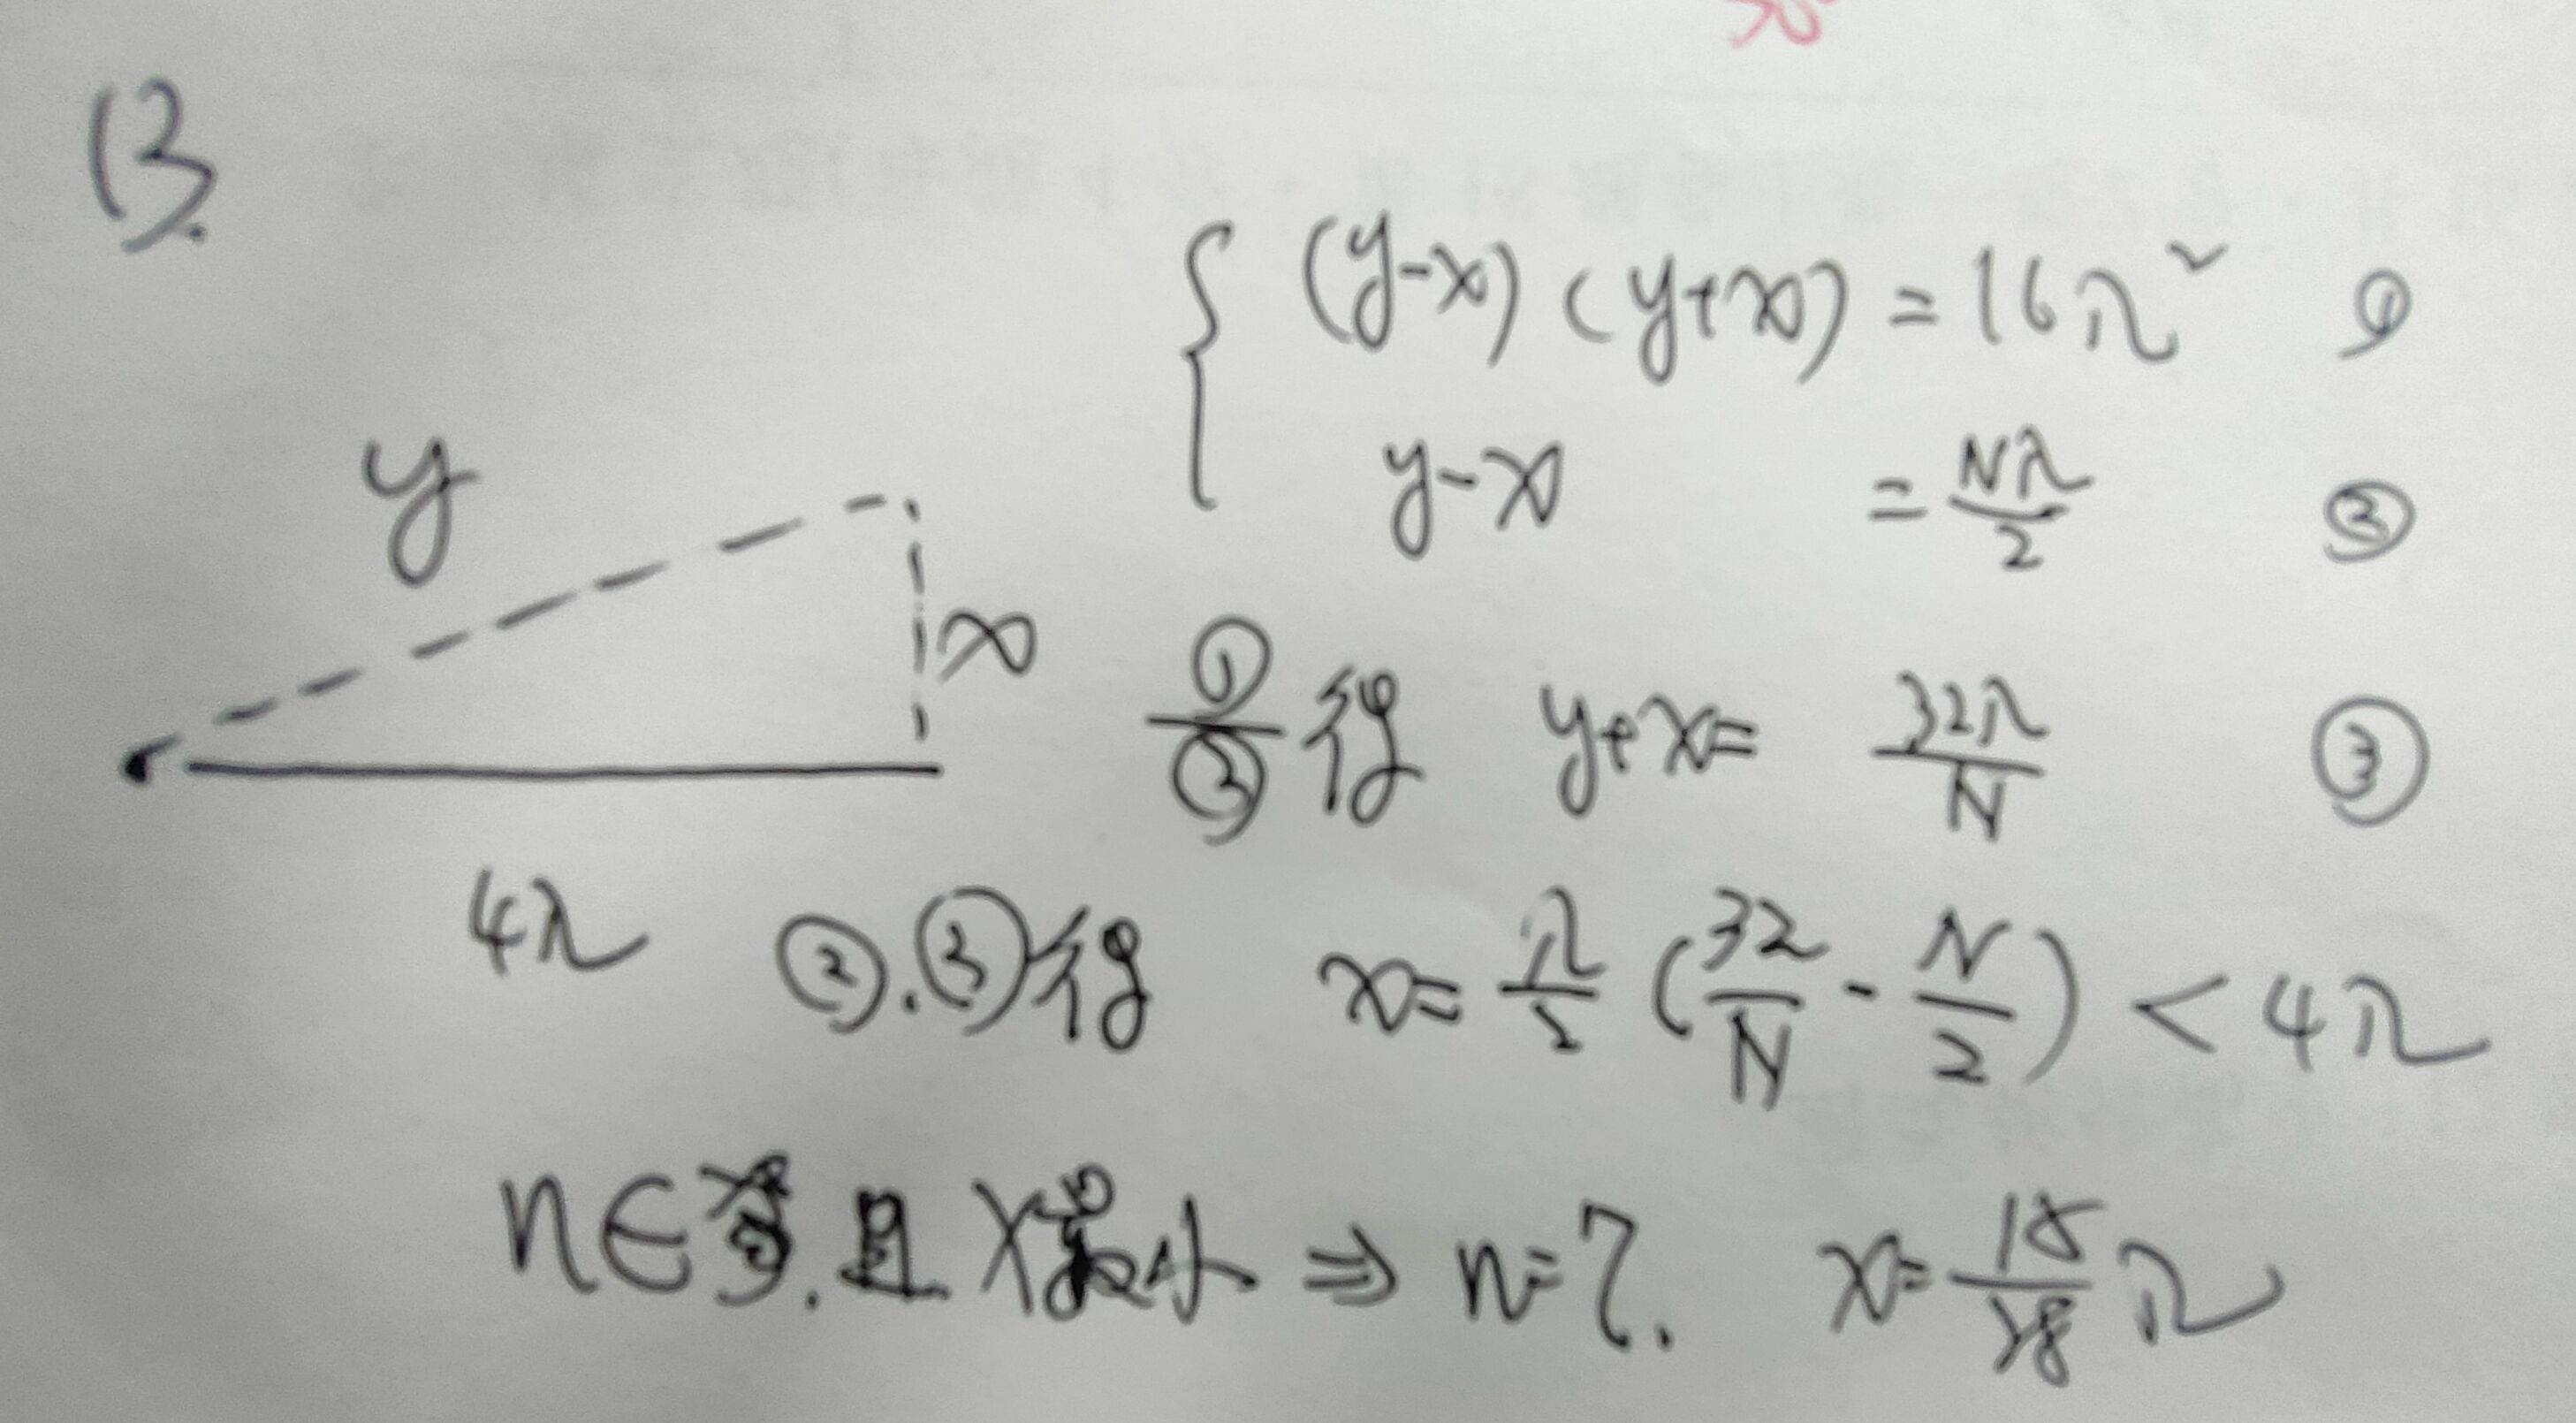 13.
(y-x)(y+x) = 16λ² ①
y-x = Nλ/2 ②
y
x
4λ
①/② 得 y+x = 32λ/N ③
②.③得 x = λ/2 (32/N - N/2) < 4λ
n∈奇. 且 x最小 ⇒ n=7. x = 15/28 λ